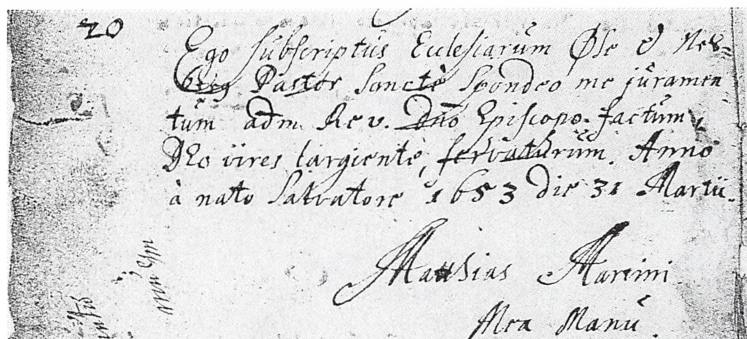 20
Ego subscriptus Ecclesiarum Øse & Nes=
bierg Pastor Sanctè Spondeo me juramen
tum adm. Rev. Dno Episcopo factum,
DEO vires largiente, servaturum. Anno
à nato Salvatore 1653 die 31 Martii.
Matthias Martini
Mea Manu.